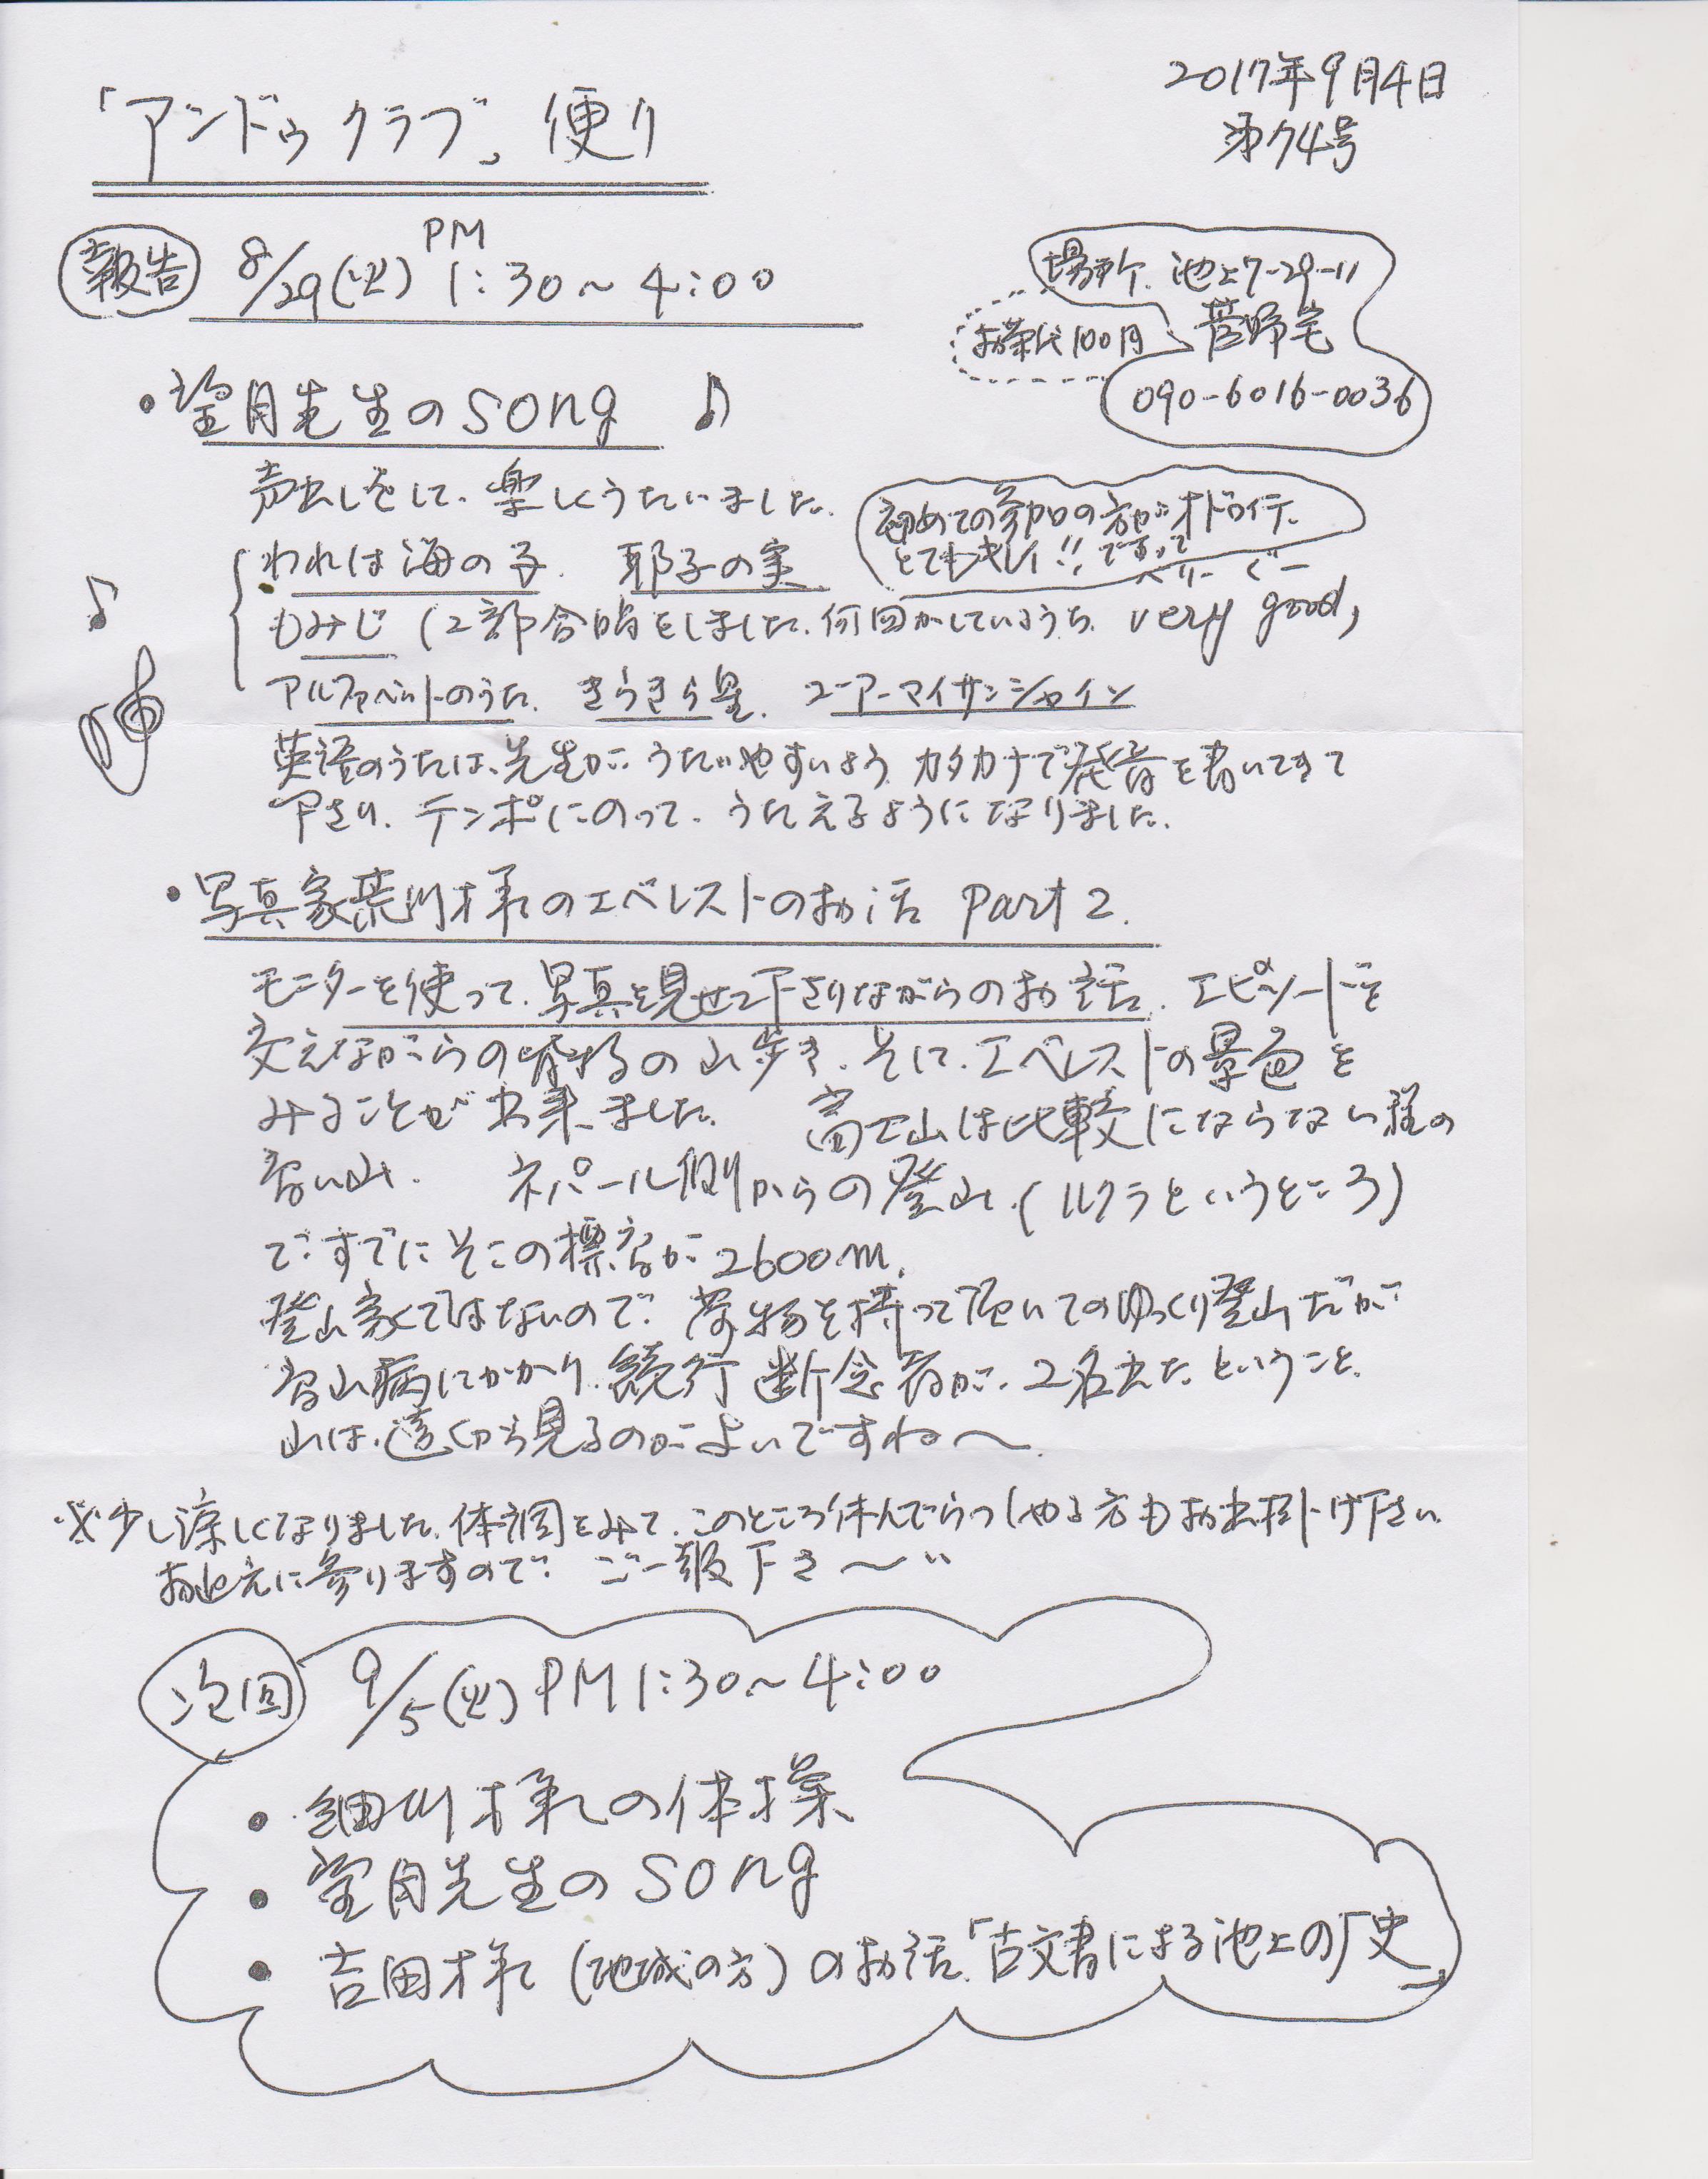 2017年9月4日
第74号
「アンドゥクラブ」便り
報告 8/29(火) PM 1:30〜4:00
場所 池上7-29-11
菅野宅
お茶代100円
090-6016-0036
・望月先生のsong ♪
声出しをして、楽しくうたいました。
初めての参加の方がオドロイテ、
とてもキレイ!!ですって
われは海の子、耶子の実
ベリーグー
もみじ(2部合唱をしました。何回かしているうち、very good,
アルファベットのうた、きらきら星、ユーアーマイサンシャイン
英語のうたは、先生が、うたいやすいよう カタカナで発音を書いてきて
下さり、テンポにのって、うたえるようになりました。
・写真家荒川様のエベレストのお話 Part 2.
モニターを使って、写真を見せて下さりながらのお話、エピソードを
交えながらの の山歩き、そして、エベレストの景色を
みることが出来ました。 富士山は比較にならない程の
高い山。 ネパール側からの登山、(ルクラというところ)
で、すでにそこの標高が2600m。
登山家ではないので、荷物を持って頂いてのゆっくり登山だが、
高山病にかかり、続行断念者が、2名出たということ。
山は、遠くから見るのがよいですね〜。
※少し涼しくなりました。体調をみて、このところ休んでらっしゃる方もお出掛け下さい。
お迎えに参りますので、ご一報下さ〜い
次回 9/5(火) PM 1:30〜4:00
・細川様の体操
・望月先生のsong
・吉田様(地域の方)のお話「古文書による池上の「史」